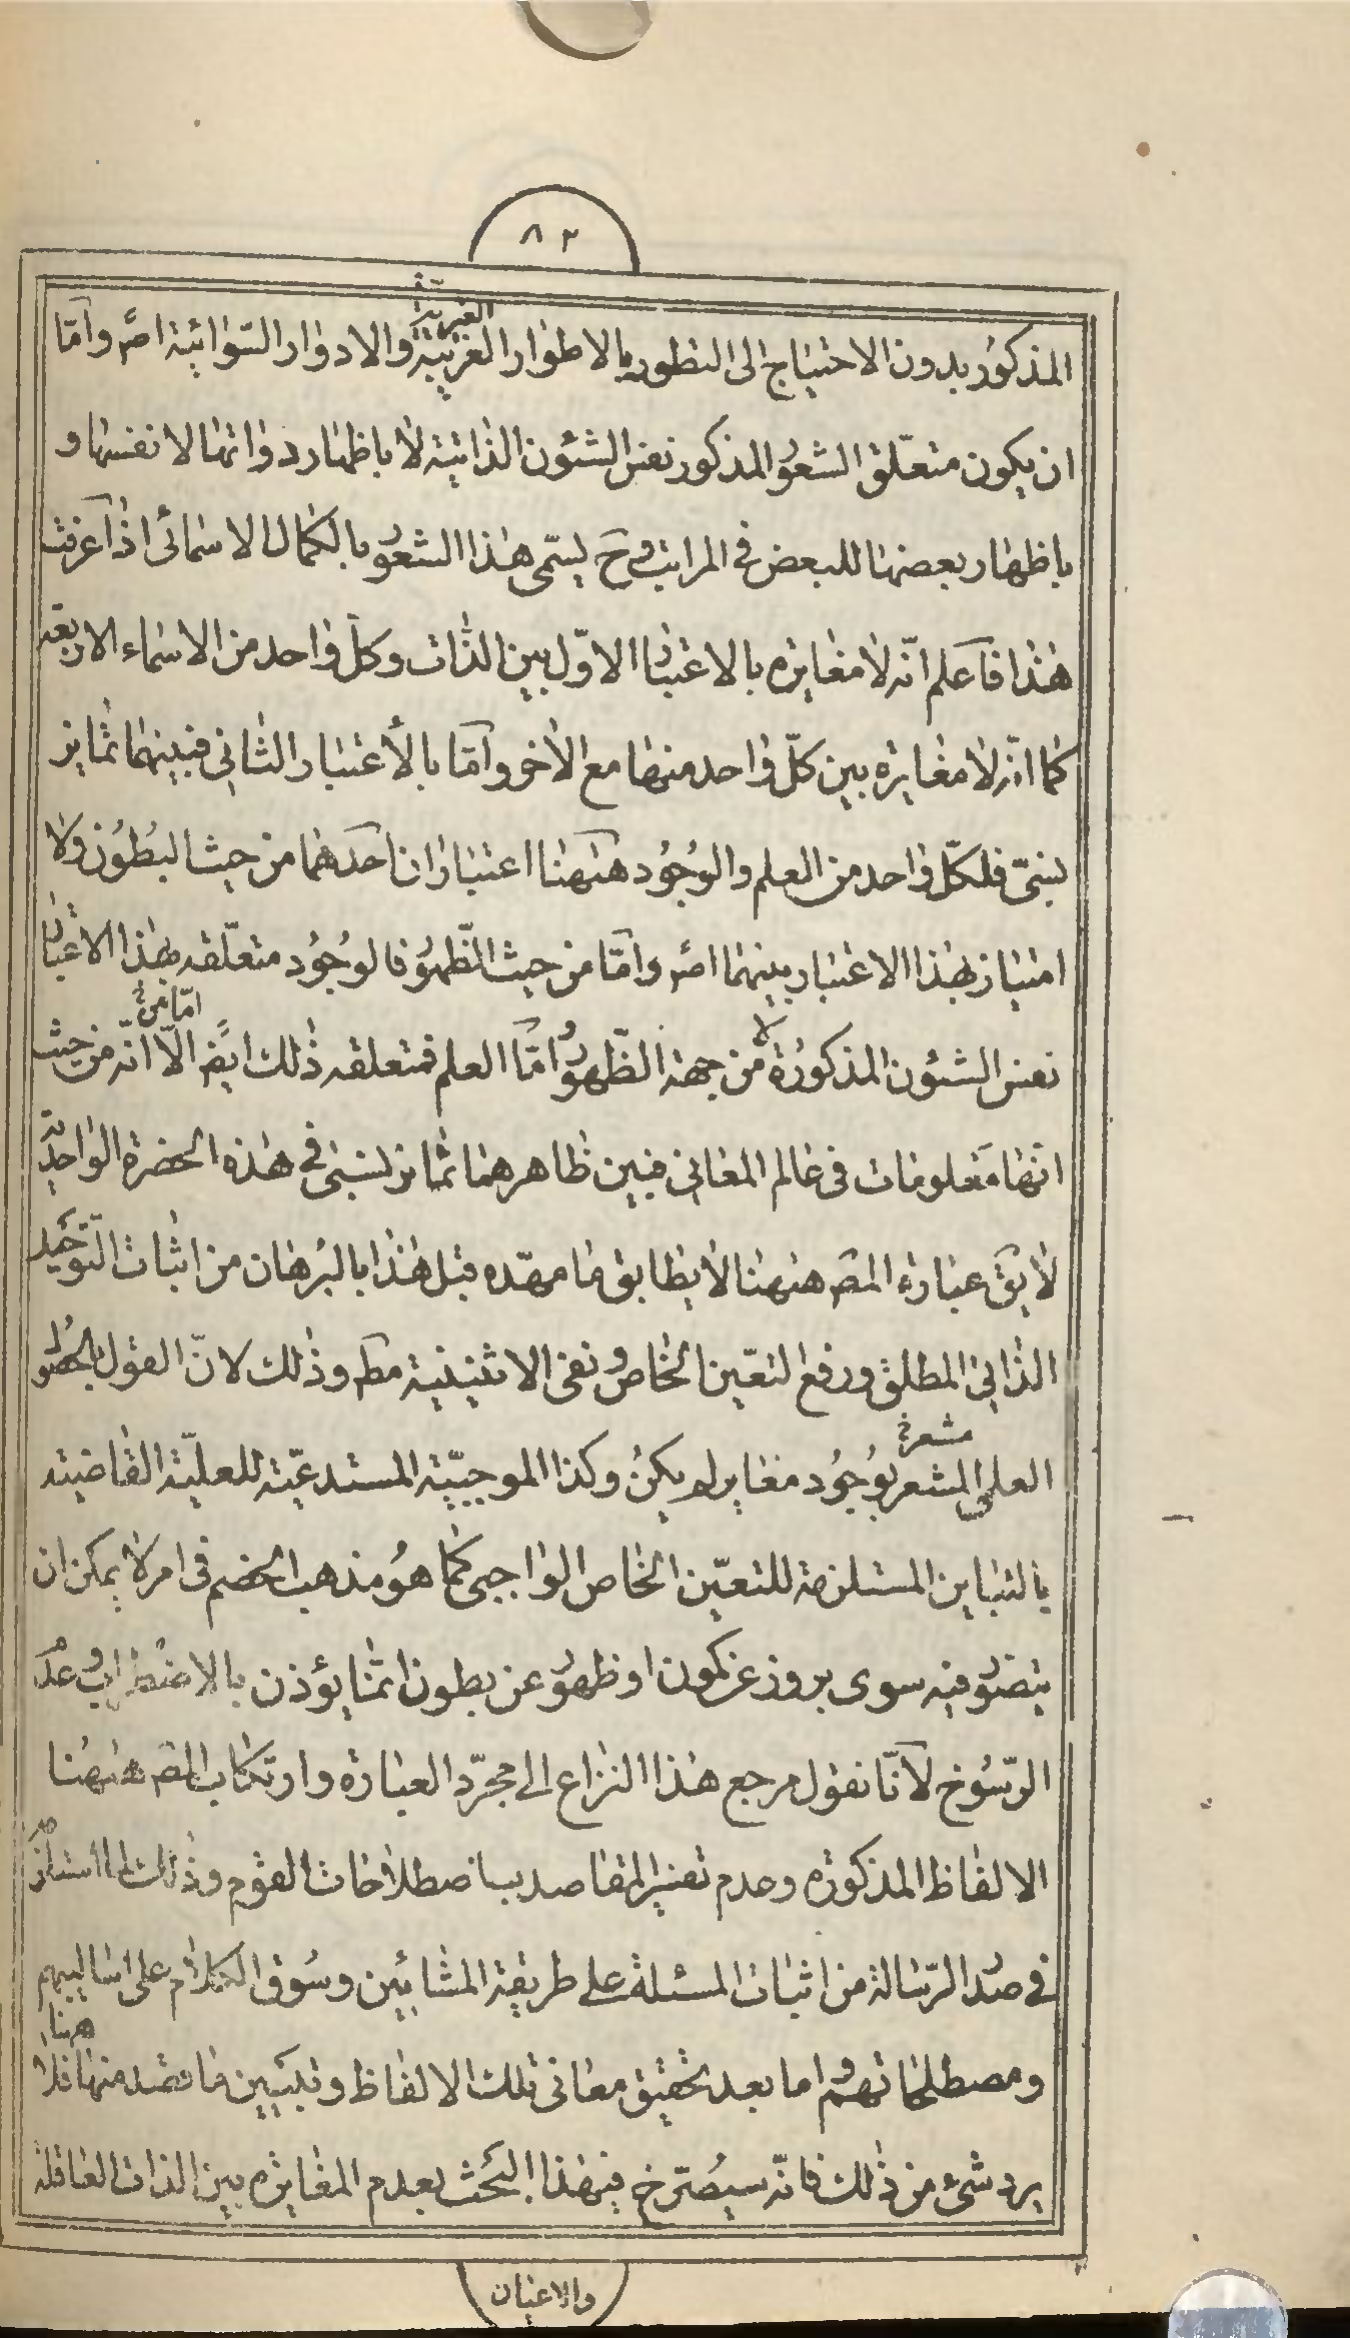 ٨٢
الغيريّة خ
المذكور بدون الاحتياج الى التطور بالاطوار الغريبة والادوار السّوائيّة اصّه وامّا
ان يكون متعلّق الشعور المذكور نفس الشئون الذاتيّة لا باظهار ذواتها لانفسها و
باظهار بعضها للبعض في المراتب وح يسمّى هذا الشعور بالكمال الاسمائى اذا عرفت
هذا فاعلم انّه لا مغايرة بالاعتبار الاوّل بين الذّات وكلّ واحد من الاسماء الاربعة
كما انّه لا مغايرة بين كلّ واحد منها مع الاخر وامّا بالأعتبار الثاني فبينهما تمايز
نسبىّ فلكلّ واحد من العلم والوجُود هٰهنا اعتباران احدهما من حيث البُطُون ولا
امتياز بهذا الاعتبار بينهما اصّه وامّا من حيث الظّهور فالوجُود متعلّقه بهذا الاعتبار
نفس الشئون المذكورة لا من جهة الظّهور وامّا العلم فمتعلقه ذلك ايضً الّا انّه من حيث
انّها معلومات فى عالم المعاني فبين ظاهرهما تمايز نسبى في هذه الحضرة الواحديّة
لا يقَ عبارة المصَ هٰهنا لا يطابق ما مهّده قبل هذا بالبُرهان من اثبات التّوحيد
الذاتي المطلق ورفع التعيّن الخاص ونفى الاثنينية مطَ وذلك لانّ القول بالحضور
مشعر خ
العلمى المشعر بوجُود مغاير لم يكنُ وكذا الموجبيّة المستدعيّة للعليّة القاضيته
بالتباين المستلزمة للتعيّن الخاص الواجبى كما هو مذهب الخصم فى امر لا يمكن ان
يتصّور فيه سوى بروز عن كمون او ظهور عن بطون انّما يؤذن بالاضطراب وعدم
الرّسُوخ لأنّا نقول مرجع هذا النزاع الى مجرّد العبارة وارتكاب المصَ هٰهنا
الالفاظ المذكورة وعدم تغيير المقاصد باصطلاحات القوم وذلك لما التزم
في صدر الرّسالة من اثبات المسئلة على طريقة المشائين وسُوق الكلام على اساليبهم
هنا
ومصطلحاتهم واما بعد تحقيق معانى تلك الالفاظ وتبيّين ما قصد منها فلا
يرد شئ من ذلك فانّه سيصُرّح فى هذا البَحث بعدم المغايرة بين الذات العاقلة
والاعيان